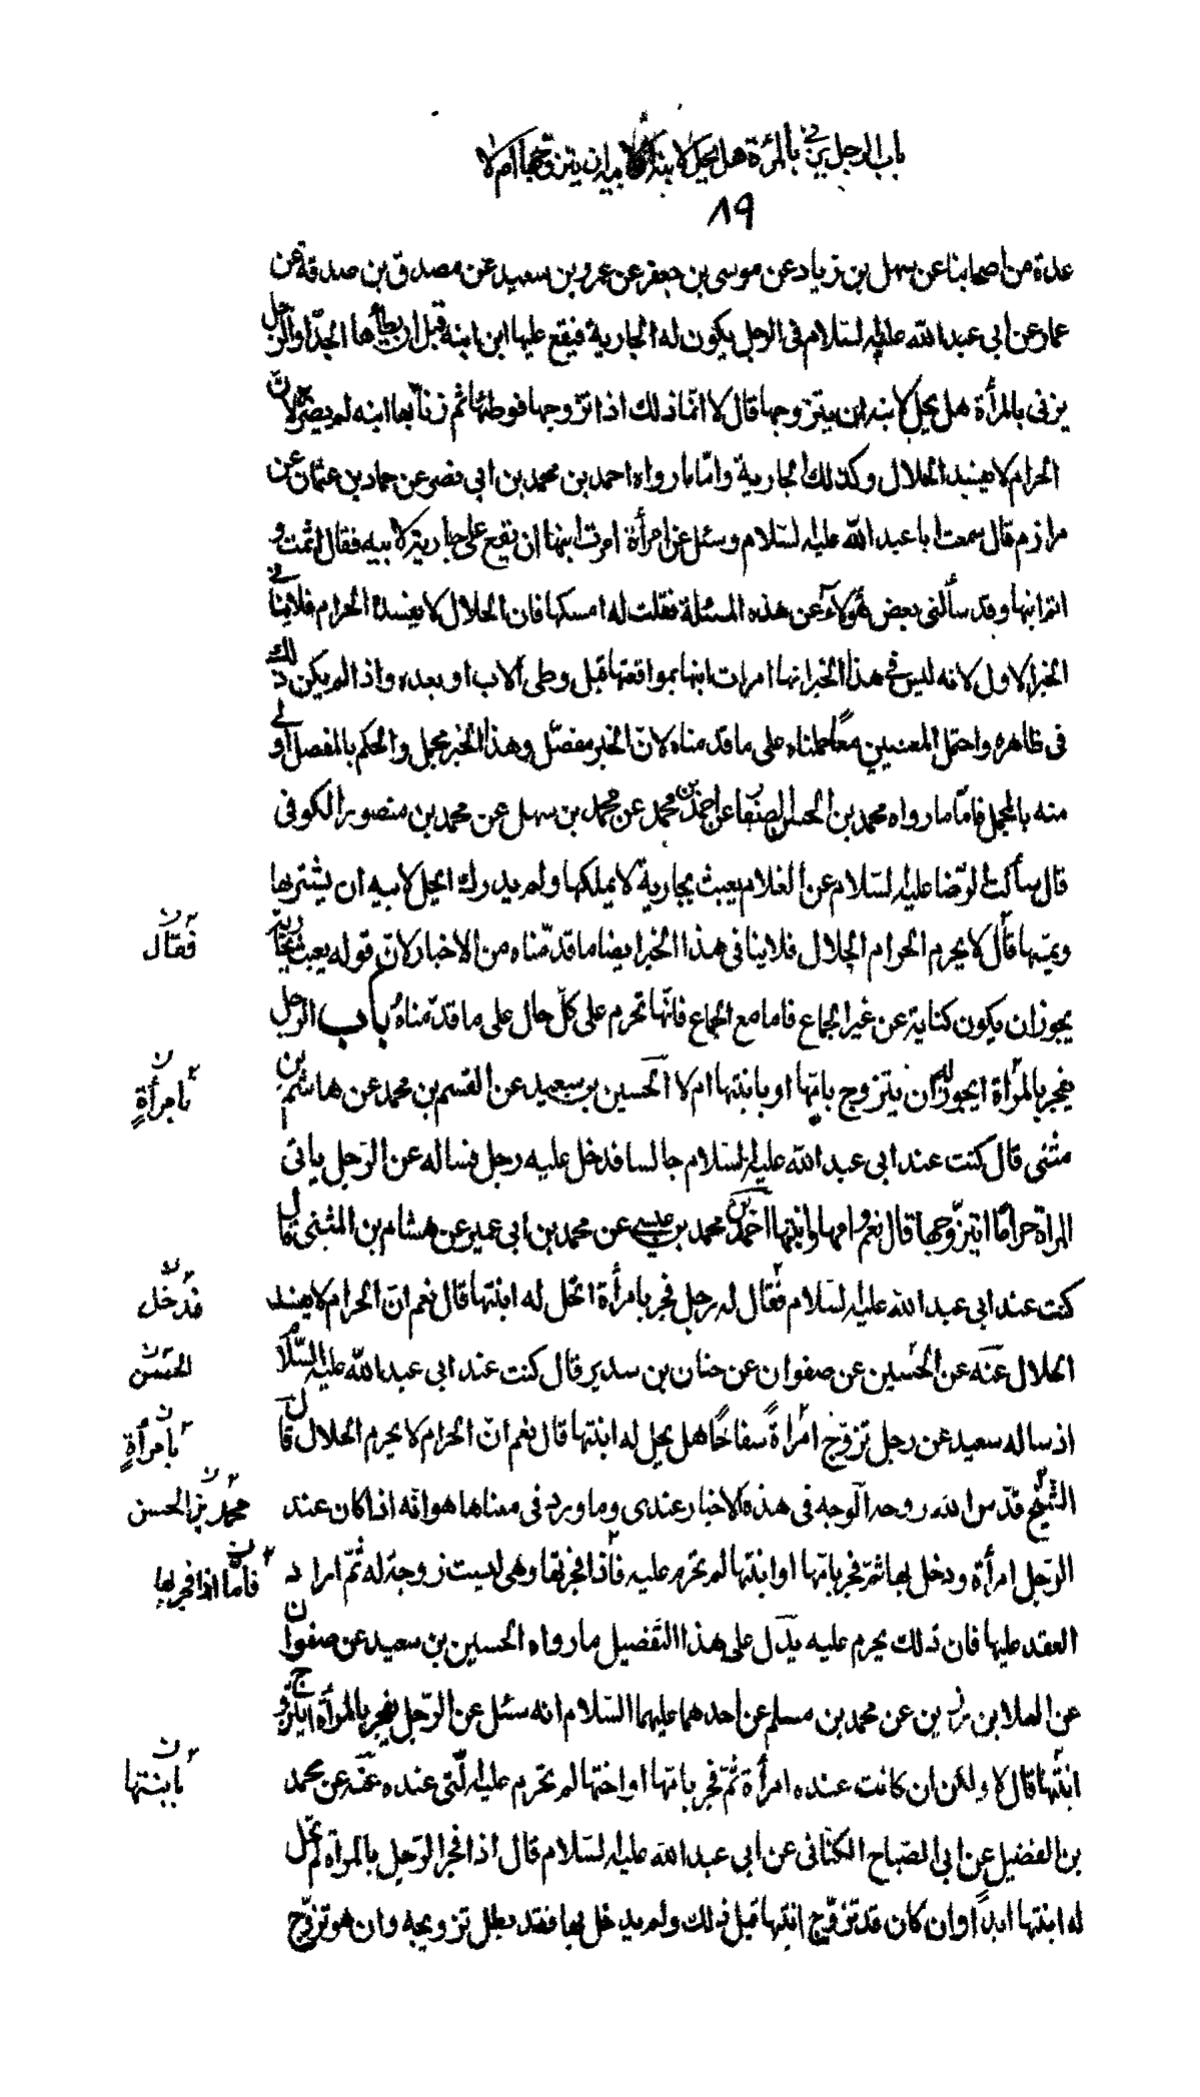 باب الرجل يزني بالمرأة هل يحل لابنه او لابيه ان يتزوجها ام لا
٨٩
عدة من اصحابنا عن سهل بن زياد عن موسى بن جعفر عن عمرو بن سعيد عن مصدق بن صدقة عن
عمار عن ابي عبد الله عليه السلام في الرجل يكون له الجارية فيقع عليها ابن ابنه قبل ان يطأها الجد او الرجل
يزني بالمرأة هل يحل لابنه ان يتزوجها قال لا انما ذلك اذا تزوجها فوطئها ثم زنا بها ابنه لم يضره لان
الحرام لا يفسد الحلال وكذلك الجارية واما ما رواه احمد بن محمد بن ابي نصر عن حماد بن عثمان عن
مرازم قال سمعت ابا عبد الله عليه السلام وسئل عن امرأة امرت ابنها ان يقع على جارية لابيه فقال اثمت و
اثم ابنها وقد سألني بعض هؤلاء عن هذه المسئلة فقلت له امسكها فان الحلال لا يفسده الحرام فلا ينافي
الخبر الاول لانه ليس في هذا الخبر انها امرت ابنها بمواقعتها قبل وطى الاب او بعده واذا لم يكن ذلك
في ظاهره واحتمل المعنيين معا حملناه على ما قدمناه لان الخبر مفصل وهذا الخبر مجمل والحكم بالمفصل اولى
منه بالمجمل فاما ما رواه محمد بن الحسن الصفار عن احمد بن محمد عن محمد بن سهل عن محمد بن منصور الكوفي
قال سألت الرضا عليه السلام عن الغلام يعبث بجارية لا يملكها ولم يدرك ايحل لابيه ان يشتريها
ويمسها قال لا يحرم الحرام الحلال فلا ينافي هذا الخبر ايضا ما قدمناه من الاخبار لان قوله يعبث بجارية
فقال
يجوز ان يكون كناية عن غير الجماع فاما مع الجماع فانها تحرم على كل حال على ما قدمناه باب الرجل
يفجر بالمرأة ايجوز له ان يتزوج بامها او بابنتها ام لا الحسين بن سعيد عن القسم بن محمد عن هاشم بن
بامرأة
مثنى قال كنت عند ابي عبد الله عليه السلام جالسا فدخل عليه رجل فساله عن الرجل ياتي
المراة حراما ايتزوجها قال نعم وامها وابنتها احمد بن محمد بن عيسى عن محمد بن ابي عمير عن هشام بن المثنى قال
كنت عند ابي عبد الله عليه السلام فقال له رجل فجر بامرأة اتحل له ابنتها قال نعم ان الحرام لا يفسد
فدخل
الحلال عنه عن الحسين عن صفوان عن حنان بن سدير قال كنت عند ابي عبد الله عليه السلام
الحسن
اذ ساله سعيد عن رجل تزوج امرأة سفاحا هل يحل له ابنتها قال نعم ان الحرام لا يحرم الحلال قال
بامرأة
الشيخ قدس الله روحه الوجه في هذه الاخبار عندى وما ورد في معناها هو انه اذا كان عند
محمد بن الحسن
الرجل امرأة ودخل بها ثم فجر بامها او ابنتها لم تحرم عليه فاذا فجر بها وهي ليست زوجة له ثم اراد
فاما اذا فجر بها
العقد عليها فان ذلك يحرم عليه يدل على هذا التفصيل ما رواه الحسين بن سعيد عن صفوان
عن العلا بن رزين عن محمد بن مسلم عن احدهما عليهما السلام انه سئل عن الرجل يفجر بالمرأة ايتزوج
ابنتها قال لا ولكن ان كانت عنده امرأة ثم فجر بامها او اختها لم تحرم عليه التي عنده عنه عن محمد
بابنتها
بن الفضيل عن ابي الصباح الكناني عن ابي عبد الله عليه السلام قال اذا فجر الرجل بالمرأة لم تحل
له ابنتها ابدا وان كان قد تزوج ابنتها قبل ذلك ولم يدخل بها فقد بطل تزويجه وان هو تزوج